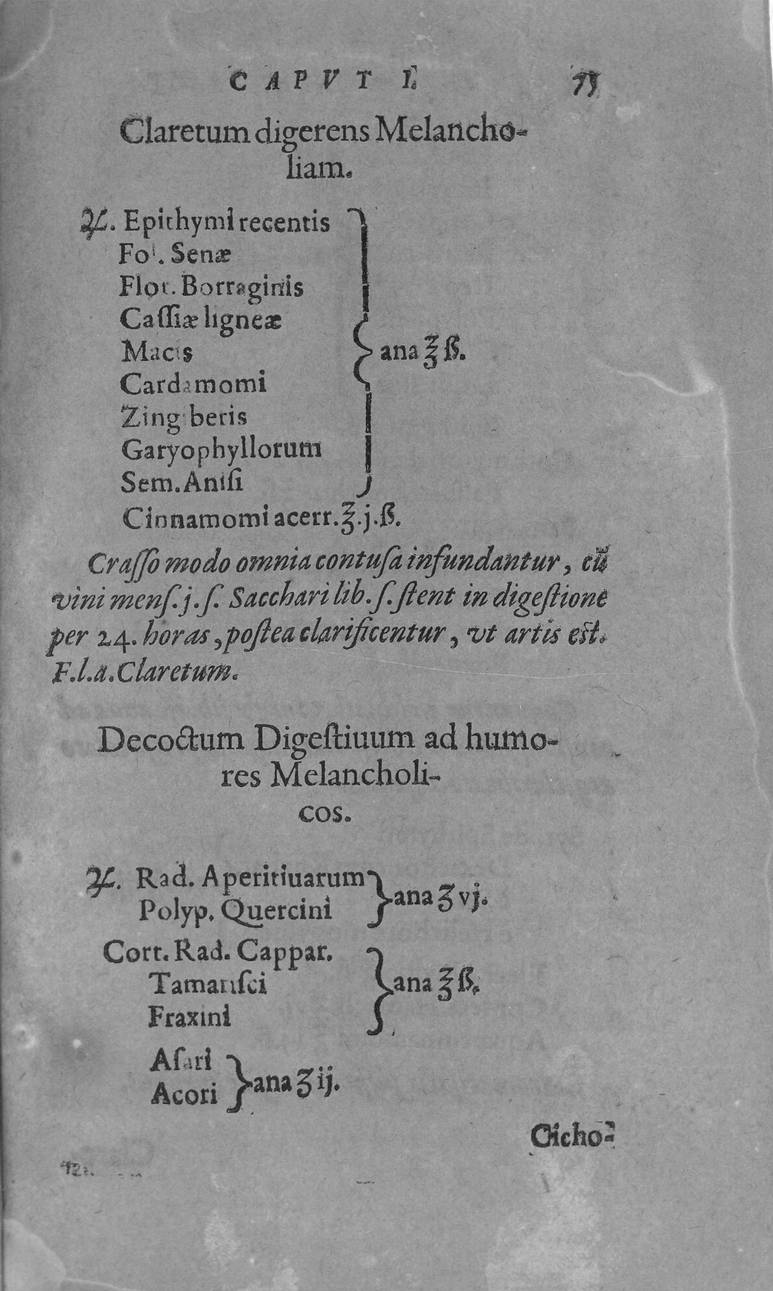 CAPVT I. 75
Claretum digerens Melancho-
liam.
♃. Epithymi recentis
Fol. Senæ
Flor. Borraginis
Caſſiæ ligneæ
Macis
Cardamomi
Zingiberis
Garyophyllorum
Sem. Aniſi
ana ℥ ß.
Cinnamomi acerr. ℥. j. ß.
Craſſo modo omnia contuſa infundantur, cū
vini menſ. j. ſ. Sacchari lib. ſ. ſtent in digeſtione
per 24. horas, poſtea clarificentur, vt artis eſt.
F. l. a. Claretum.
Decoctum Digeſtiuum ad humo-
res Melancholi-
cos.
♃. Rad. Aperitiuarum
Polyp. Quercini
ana ʒ vj.
Cort. Rad. Cappar.
Tamariſci
Fraxini
ana ℥ ß.
Aſari
Acori
ana ʒ ij.
Cicho-